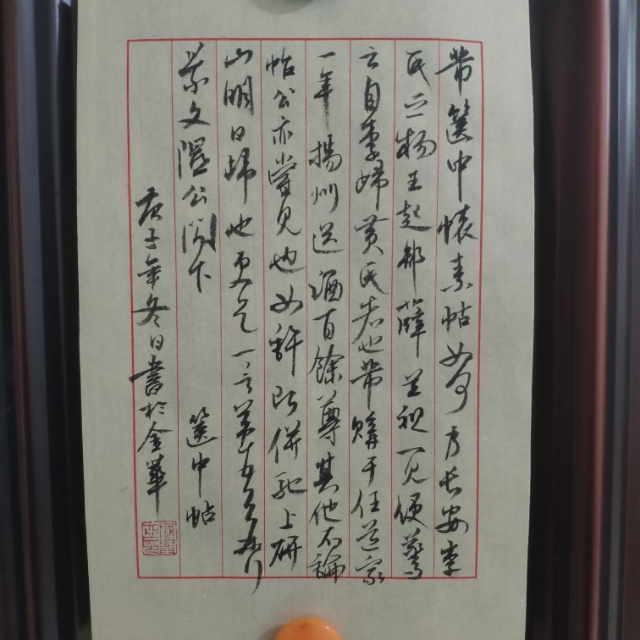 芾篋中懐素帖如何乃长安李
氏之物王起部薛道祖一见便驚
云自李歸黄氏者也芾購于任道家
一年揚州送酒百餘尊其他不論
帖公亦嘗見也如許即併馳上研
山明日歸也更乞一言芾頓首再拜
景文隰公閣下
篋中帖
庚子年冬日書於金華